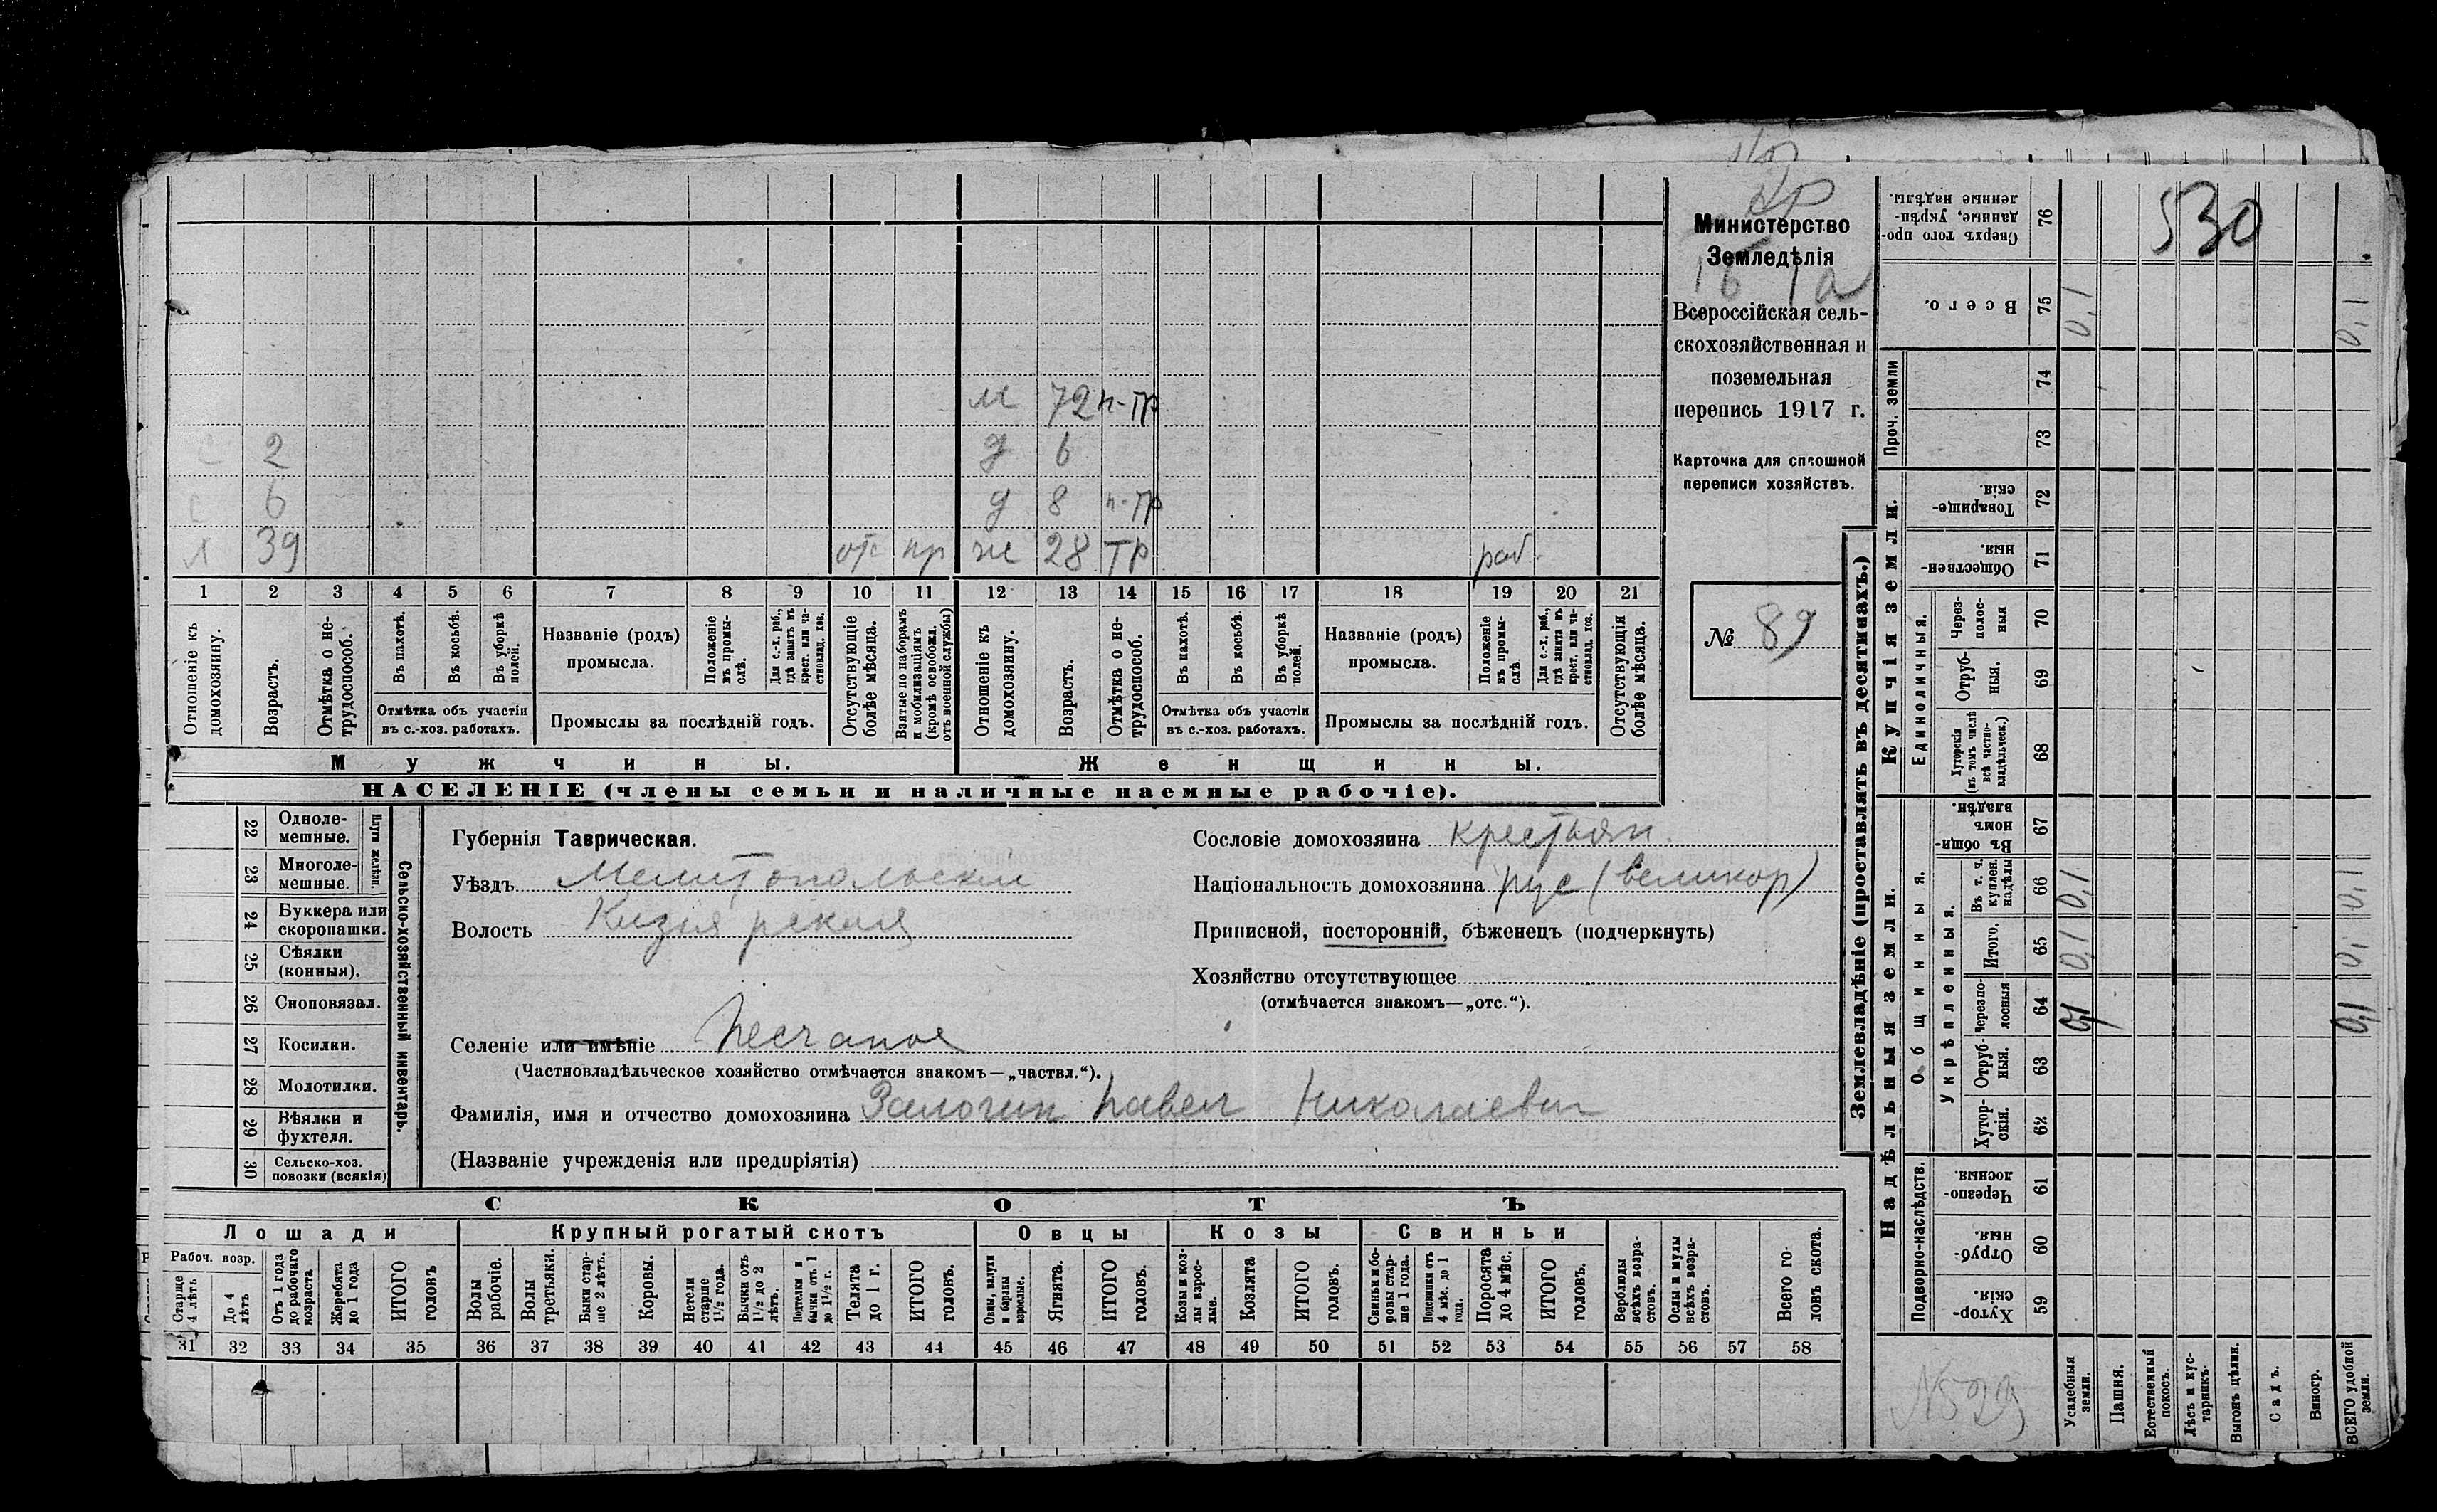 Министерство
Земледѣлія
Всероссійская сель-
скохозяйственная и
поземельная
перепись 1917 г.
Карточка для сплошной
переписи хозяйствъ.
№ 89
530
м 72 п-тр
с 2 д 6
с 6 д 8 п-тр
х 39 отс пр ж 28 тр раб.
1 2 3 4 5 6 7 8 9 10 11 12 13 14 15 16 17 18 19 20 21
Отношеніе къ домохозяину.
Возрастъ.
Отмѣтка о не-трудоспособ.
Въ пахотѣ.
Въ косьбѣ.
Въ уборкѣ полей.
Отмѣтка объ участіи
въ с.-хоз. работахъ.
Названіе (родъ)
промысла.
Положеніе въ промы-слѣ.
Для с.-х. раб., гдѣ занятъ въ крест. или ча-стновлад. хоз.
Промыслы за послѣдній годъ.
Отсутствующіе болѣе мѣсяца.
Взятые по наборамъ и мобилизаціямъ (кромѣ освобожд. отъ военной службы)
Отношеніе къ домохозяину.
Возрастъ.
Отмѣтка о не-трудоспособ.
Въ пахотѣ.
Въ косьбѣ.
Въ уборкѣ полей.
Отмѣтка объ участіи
въ с.-хоз. работахъ.
Названіе (родъ)
промысла.
Положеніе въ промы-слѣ.
Для с.-х. раб., гдѣ занята въ крест. или ча-стновлад. хоз.
Промыслы за послѣдній годъ.
Отсутствующія болѣе мѣсяца.
Мужчины. Женщины.
НАСЕЛЕНІЕ (члены семьи и наличные наемные рабочіе).
Сельско-хозяйственный инвентарь.
Плуги желѣзн.
22 Одноле-мешные.
23 Многоле-мешные.
24 Буккера или скоропашки.
25 Сѣялки (конныя).
26 Сноповязал.
27 Косилки.
28 Молотилки.
29 Вѣялки и фухтеля.
30 Сельско-хоз. повозки (всякія)
Губернія Таврическая.
Уѣздъ Мелитопольскій
Волость
Селеніе или имѣніе Песчаное
(Частновладѣльческое хозяйство отмѣчается знакомъ—„частвл.“).
Фамилія, имя и отчество домохозяина Залогин Павел Николаевич
(Названіе учрежденія или предпріятія)
Сословіе домохозяина крестьян.
Національность домохозяина рус (великор)
Приписной, посторонній, бѣженецъ (подчеркнуть)
Хозяйство отсутствующее
(отмѣчается знакомъ—„отс.“).
СКОТЪ
Лошади Крупный рогатый скотъ Овцы Козы Свиньи
Рабоч. возр.
Старше 4 лѣтъ
До 4 лѣтъ
Отъ 1 года до рабочаго возраста
Жеребята до 1 года
ИТОГО головъ
Волы рабочіе.
Волы третьяки.
Быки стар-ше 2 лѣтъ.
Коровы.
Нетели старше 1½ года.
Бычки отъ 1½ до 2 лѣтъ.
Подтелки и бычки отъ 1 до 1½ г.
Телята до 1 г.
ИТОГО головъ.
Овцы, валухи и бараны взрослые.
Ягнята.
ИТОГО головъ.
Козы и коз-лы взрос-лые.
Козлята
ИТОГО головъ.
Свиньи и бо-ровы стар-ше 1 года.
Подсвинки отъ 4 мѣс. до 1 года.
Поросята до 4 мѣс.
ИТОГО головъ.
Верблюды всѣхъ возра-стовъ.
Ослы и мулы всѣхъ возра-стовъ.
Всего го-ловъ скота.
31 32 33 34 35 36 37 38 39 40 41 42 43 44 45 46 47 48 49 50 51 52 53 54 55 56 57 58
Землевладѣніе (проставлять въ десятинахъ.)
Надѣльныя земли. Купчія земли. Проч. земли
Подворно-наслѣдств. Общинныя. Укрѣпленныя. Единоличныя.
76 Сверхъ того про-данные, укрѣп-ленные надѣлы.
75 Всего. 0,1 0,1
74
73
72 Товарище-скія.
71 Обществен-ныя.
70 Через-полос-ныя
69 Отруб-ныя.
68 Хуторскія (въ томъ числѣ всѣ частно-владѣльческ.)
67 Въ общи-номъ владѣн.
66 Въ т. ч. куплен. надѣлы 0,1 0,1
65 Итого. 0,1 0,1
64 Черезпо-лосныя 0,1 0,1
63 Отруб-ныя.
62 Хутор-скія.
61 Черезпо-лосныя
60 Отруб-ныя.
59 Хутор-скія.
Усадебныя земли.
Пашня.
Естественный покосъ.
Лѣсъ и кус-тарникъ.
Выгонъ цѣлин.
Садъ.
Виногр.
ВСЕГО удобной земли.